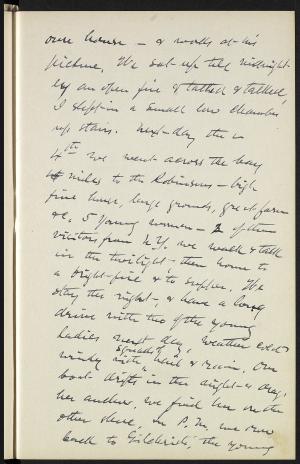 own house — & works at his
picture. We sat up till midnight
by an open fire & talked & talked,
I slept in a small low chamber
up stairs. Next day the
4th we went across the bay
4 miles to the Robinsons — high
fine house, large grounds, great farm
&c, 5 young women — 2 of them
visitors from N.Y, we walk & talk
in the twilight — then home to
a bright fire & to supper. We
stay the night, & have a long
drive with two of the young
ladies next day, weather cold
windy with spurts of hail & rain. Our
boat drifts in the night & drags
her anchor, we find her on the
other shore, in P.M. we row
back to Gilchrist's, the young